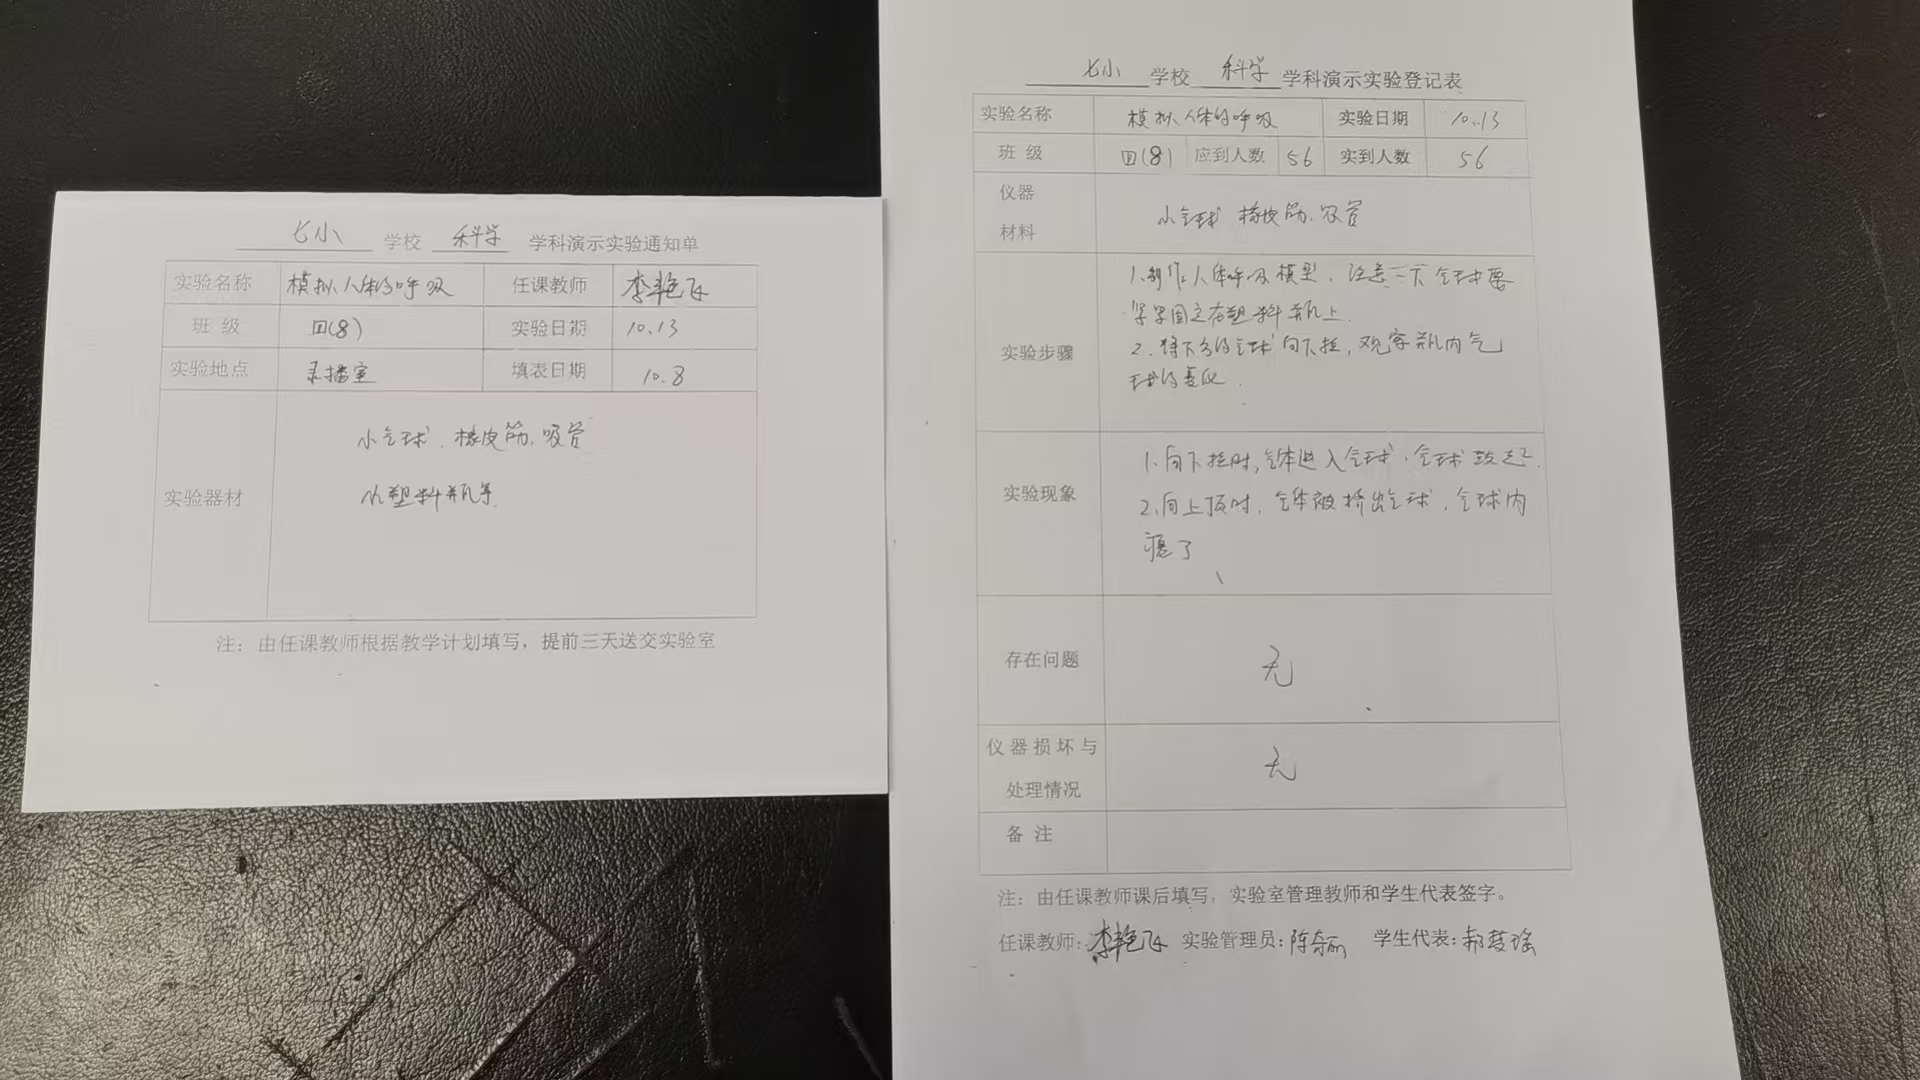 七小 学校 科学 学科演示实验通知单
实验名称 模拟人体的呼吸 任课教师 李艳飞
班 级 四(8) 实验日期 10.13
实验地点 录播室 填表日期 10.8
实验器材
小气球、橡皮筋、吸管
小塑料瓶等.
注：由任课教师根据教学计划填写，提前三天送交实验室
七小 学校 科学 学科演示实验登记表
实验名称 模拟人体的呼吸 实验日期 10.13
班 级 四(8) 应到人数 56 实到人数 56
仪器
材料
小气球 橡皮筋、吸管
实验步骤
1.制作人体呼吸模型，注意一下气球要
牢牢固定在塑料瓶上.
2.将下方的气球向下拉，观察瓶内气
球的变化.
实验现象
1.向下拉时，气体进入气球，气球鼓起.
2.向上顶时，气体被挤出气球，气球内
瘪了
存在问题 无
仪器损坏与
处理情况
无
备 注
注：由任课教师课后填写，实验室管理教师和学生代表签字。
任课教师：李艳飞 实验管理员：陈 学生代表：郝 瑶